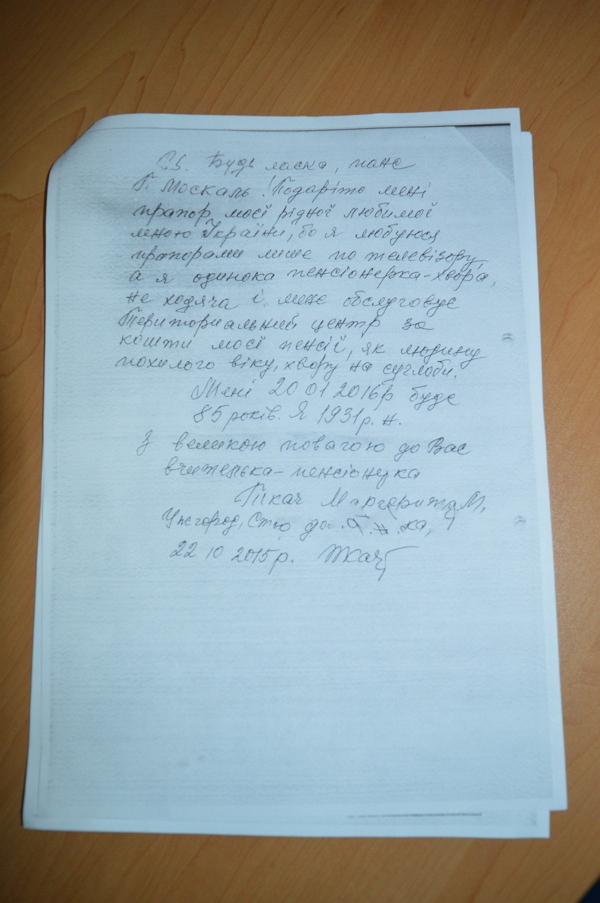 Будь ласка, пане
Г. Москаль! Подаріть мені
прапор моєї рідної любимої
мною України, бо я любуюся
прапорами лише по телевізору,
а я одинока пенсіонерка-хвора,
не ходяча і мене обслуговує
Територіальний центр за
кошти моєї пенсії, як людину
похилого віку, хвору на суглоби.
Мені 20 01 2016р буде
85 років. Я 1931 р. н.
З великою повагою до Вас
вчителька-пенсіонерка
Ткач Маргарита М,
Ужгород,
22 10 2015 р. Ткач